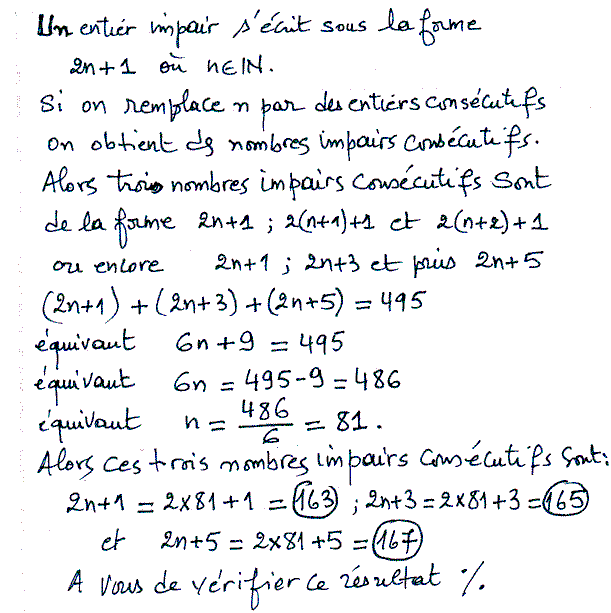 Un entier impair s'écrit sous la forme
2n+1 où n∈IN.
Si on remplace n par des entiers consécutifs
on obtient ds nombres impairs consécutifs.
Alors trois nombres impairs consécutifs sont
de la forme 2n+1 ; 2(n+1)+1 et 2(n+2)+1
ou encore 2n+1 ; 2n+3 et puis 2n+5
(2n+1) + (2n+3) + (2n+5) = 495
équivaut 6n+9 = 495
équivaut 6n = 495-9 = 486
équivaut n = 486/6 = 81.
Alors ces trois nombres impairs consécutifs sont:
2n+1 = 2×81+1 = 163 ; 2n+3 = 2×81+3 = 165
et 2n+5 = 2×81+5 = 167
A vous de vérifier ce résultat %.